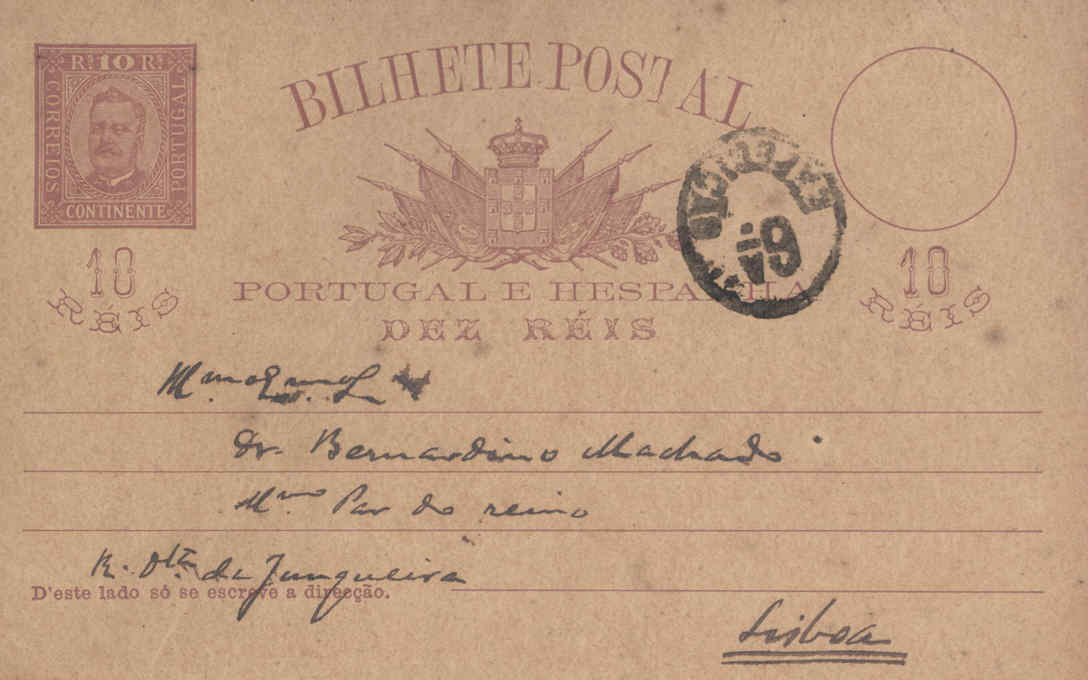 Rˢ 10 Rˢ
CORREIOS
PORTUGAL
CONTINENTE
10
RÉIS
BILHETE POSTAL
PORTUGAL E HESPANHA
DEZ RÉIS
6ª
10
RÉIS
Illmo Exmo Sr
Dr. Bernardino Machado
Mmo Par do reino
R. Dta. da Junqueira
D'este lado só se escreve a direcção.
Lisboa